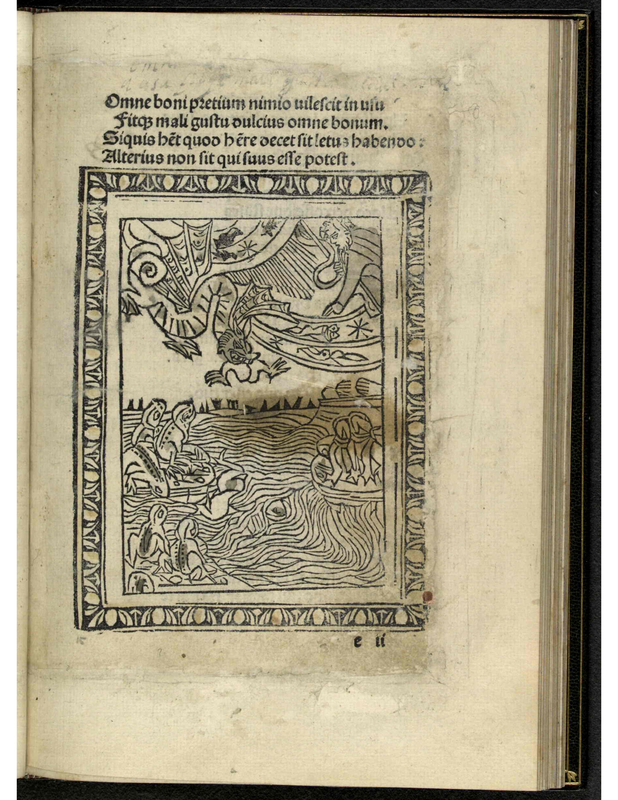 Omne boni pretium nimio uilescit in usu
Fitq; mali gustu dulcius omne bonum.
Siquis hẽt quod hẽre decet sit letus habendo:
Alterius non sit qui suus esse potest.
e ii